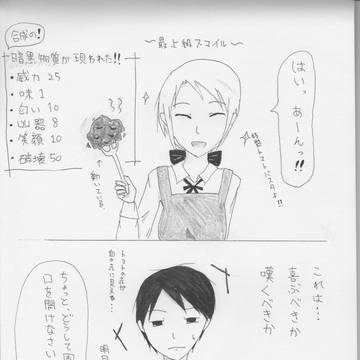 合成の!
暗黒物質が現われた!!
・威力 25
・味 1
・匂い 10
・凶器 8
・笑顔 10
・破壊 50
〜最上級スマイル〜
はいっ
あーんっ!!
特製トマトパスタよ!!
↑動いている
これは…
喜ぶべきか
嘆くべきか
トマトの皮が
ちょっと、どうして固
口を開けなさい
明日